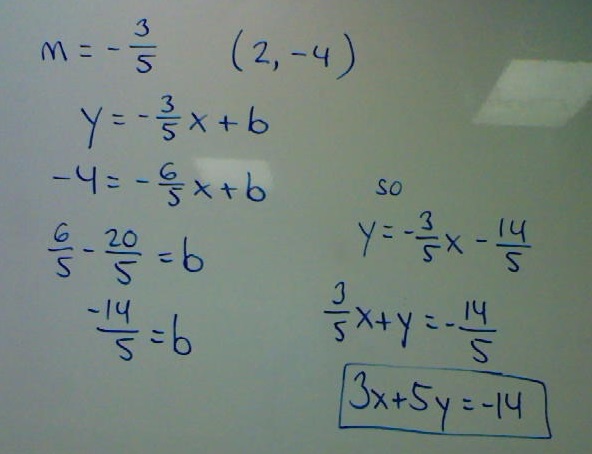 m = -3/5 (2, -4)
y = -3/5 x + b
-4 = -6/5 x + b
6/5 - 20/5 = b
-14/5 = b
so
y = -3/5 x - 14/5
3/5 x + y = -14/5
3x + 5y = -14